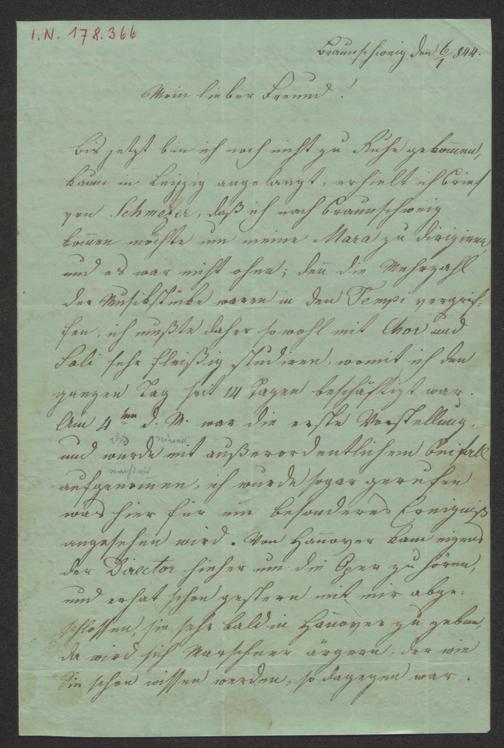 I.N. 178.366
Braunschweig den 6/1 844.
Mein lieber Freund!
Bis jetzt bin ich noch nicht zu Ruhe gekommen,
kaum in Leipzig angelangt, erhielt ich Brief
von Schmezer, daß ich nach Braunschweig
kommen möchte um meine Mara zu dirigiren,
und es war nicht ohne; denn die Mehrzahl
der Musikstücke waren in den Tempi vergrif-
fen, ich mußte daher sowohl mit Chor und
Soli sehr fleißig studiren, womit ich den
ganzen Tag seit 14 Tagen beschäftigt war.
Am 4ten d. M. war die erste Vorstellung.
und wurde mit außerordentlichem Beifall
aufgenommen, ich wurde sogar gerufen
was hier für ein besonderes Ereigniß
angesehen wird. Von Hannover kam eigens
der Director hieher um die Oper zu hören,
und er hat schon gestern mit mir abge-
schlossen, sie sehr bald in Hannover zu geben,
da wird sich Marschner ärgern, der wie
Sie schon wissen werden, so dagegen war.